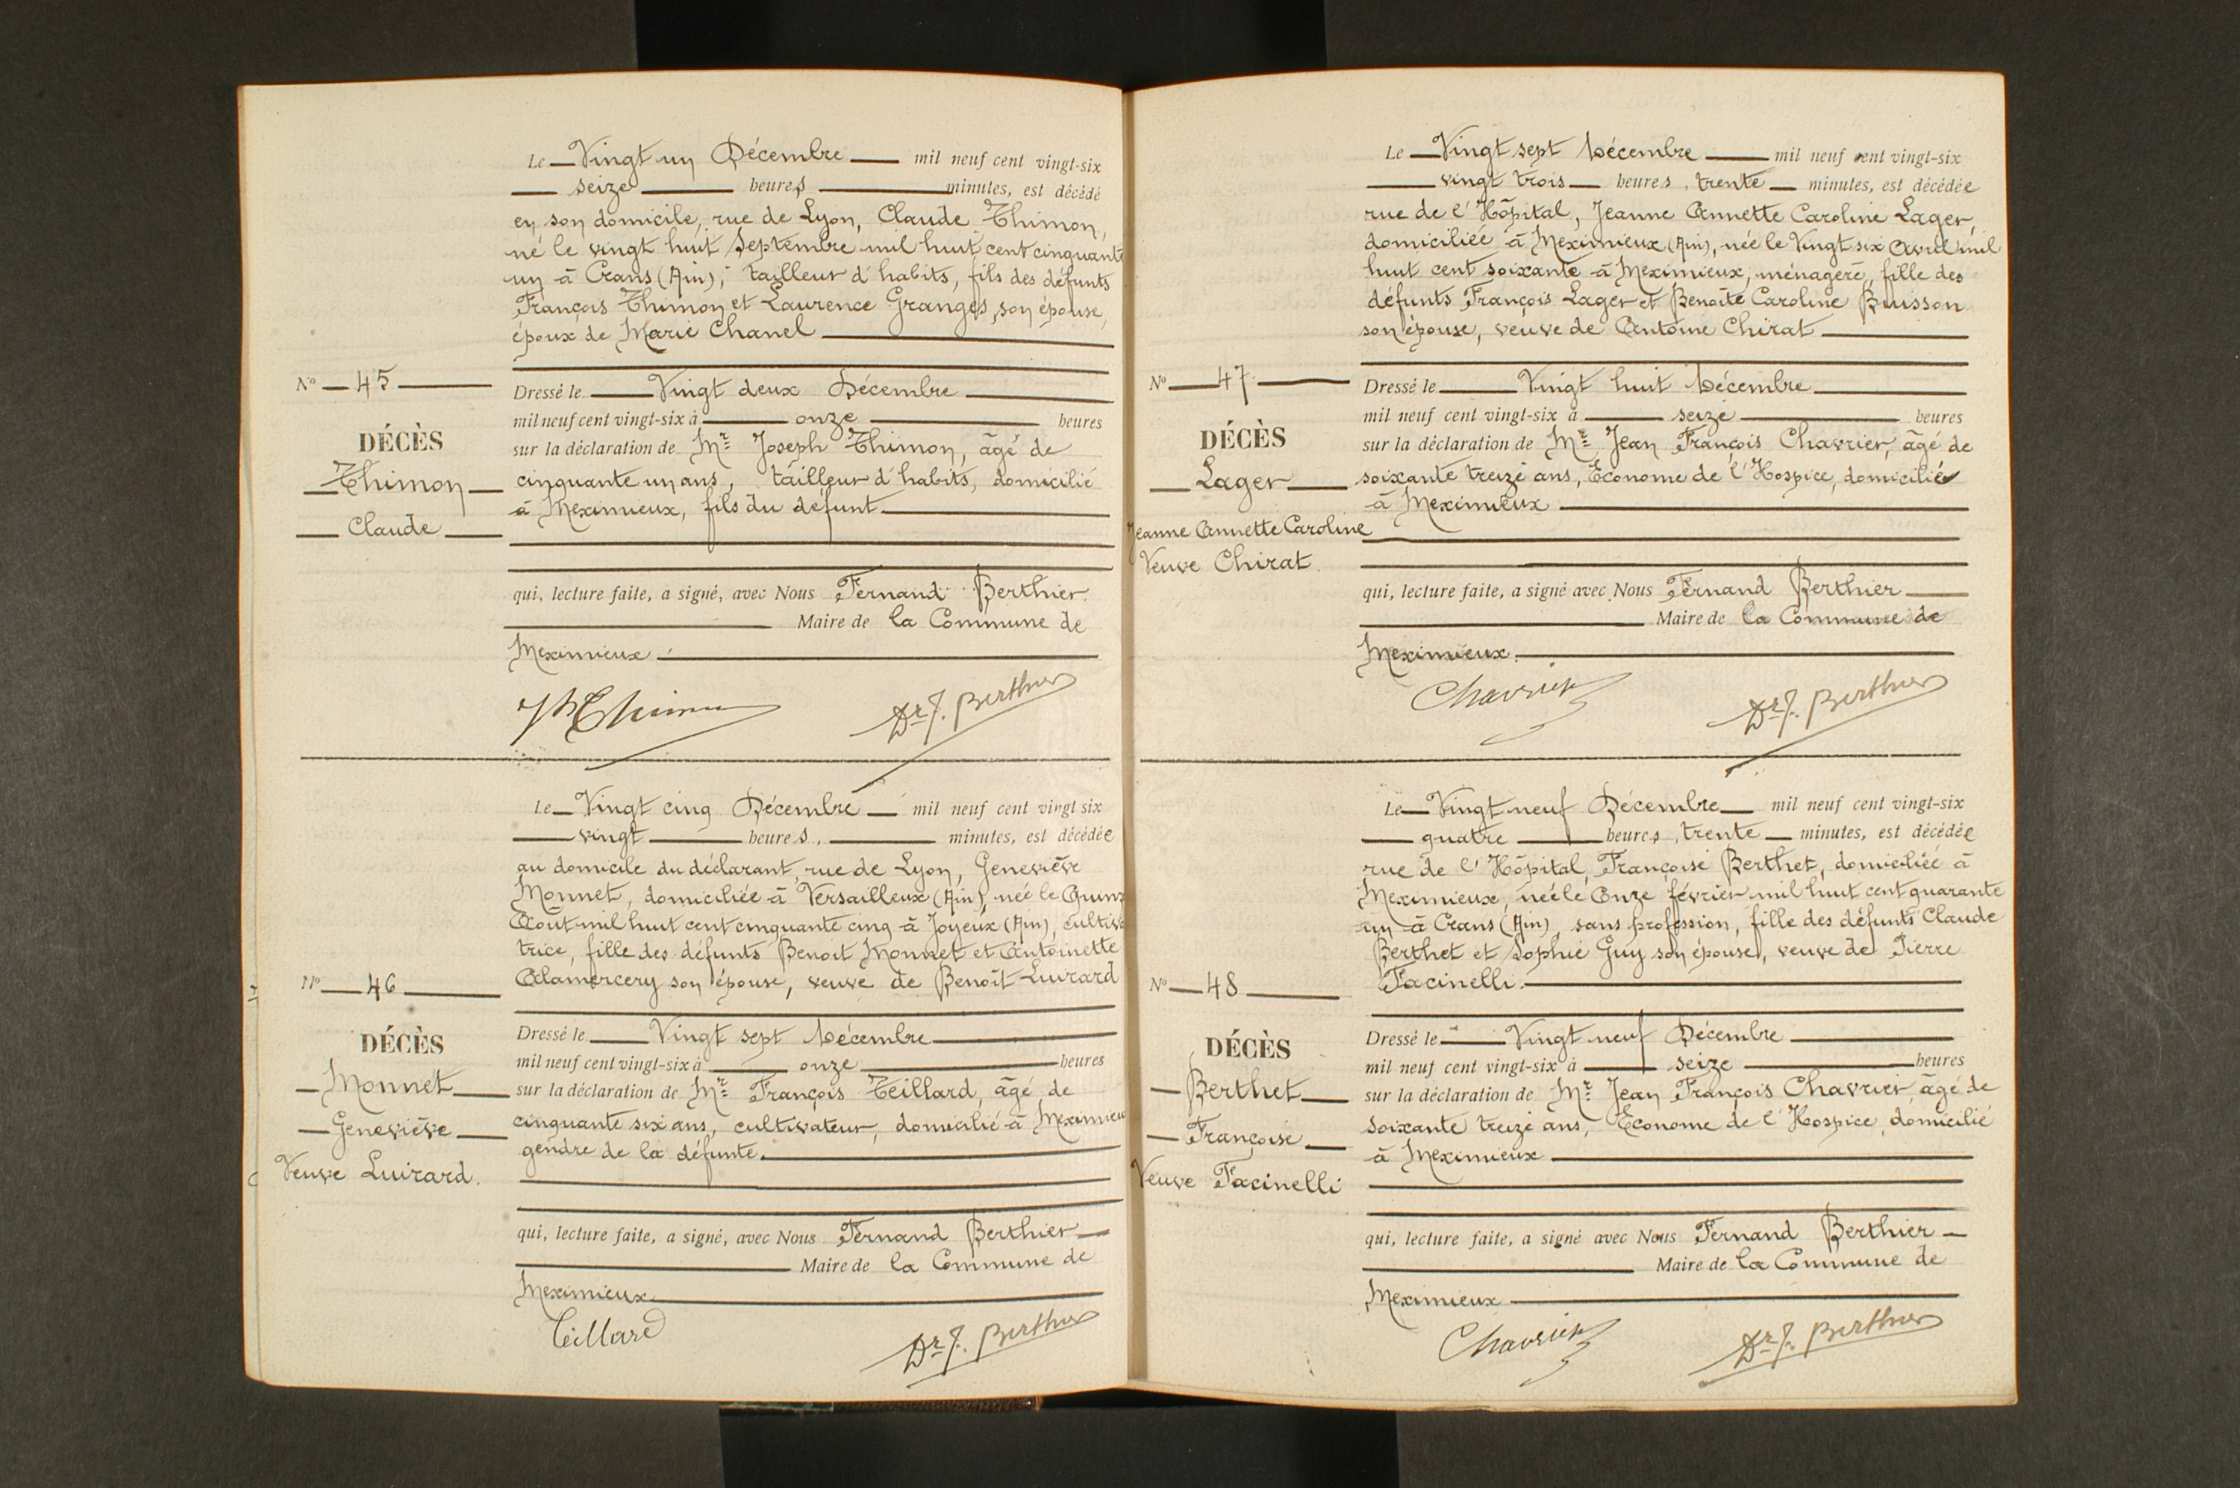 Le Vingt un Décembre mil neuf cent vingt-six
seize heures minutes, est décédé
en son domicile, rue de Lyon, Claude Thimon,
né le vingt huit Septembre mil huit cent cinquante
un à Crans (Ain), tailleur d'habits, fils des défunts
François Thimon et Laurence Granges, son épouse,
époux de Marie Chanel
N° 45
DÉCÈS
Thimon
Claude
Dressé le Vingt deux Décembre
mil neuf cent vingt-six à onze heures
sur la déclaration de Mr Joseph Thimon, âgé de
cinquante un ans, tailleur d'habits, domicilié
à Meximieux, fils du défunt
qui, lecture faite, a signé, avec Nous Fernand Berthier
Maire de la Commune de
Meximieux
Jh Thimon
Dr F. Berthier
Le Vingt cinq Décembre mil neuf cent vingt six
vingt heures, minutes, est décédée
au domicile du déclarant, rue de Lyon, Geneviève
Monnet, domiciliée à Versailleux (Ain), née le Quinz
Août mil huit cent cinquante cinq à Joyeux (Ain), cultiva
trice, fille des défunts Benoit Monnet et Antoinette
Alamercery son épouse, veuve de Benoît Luirard
N° 46
DÉCÈS
Monnet
Geneviève
Veuve Luirard.
Dressé le Vingt sept Décembre
mil neuf cent vingt-six à onze heures
sur la déclaration de Mr François Teillard, âgé de
cinquante six ans, cultivateur, domicilié à Meximieu
gendre de la défunte.
qui, lecture faite, a signé, avec Nous Fernand Berthier
Maire de la Commune de
Meximieux
Teillard
Dr F. Berthier
Le Vingt sept Décembre mil neuf cent vingt-six
vingt trois heures, trente minutes, est décédée
rue de l'Hôpital, Jeanne Annette Caroline Lager,
domiciliée à Meximieux (Ain), née le Vingt six Avril mil
huit cent soixante à Meximieux, ménagère, fille des
défunts François Lager et Benoîte Caroline Buisson
son épouse, veuve de Antoine Chirat
N° 47
DÉCÈS
Lager
Jeanne Annette Caroline
Veuve Chirat.
Dressé le Vingt huit Décembre
mil neuf cent vingt-six à seize heures
sur la déclaration de Mr Jean François Chavrier, âgé de
soixante treize ans, Econome de l'Hospice, domicilié
à Meximieux
qui, lecture faite, a signé avec Nous Fernand Berthier
Maire de la Commune de
Meximieux.
Chavrier
Dr F. Berthier
Le Vingt neuf Décembre mil neuf cent vingt-six
quatre heures, trente minutes, est décédée
rue de l'Hôpital, Françoise Berthet, domiciliée à
Meximieux, née le Onze février mil huit cent quarante
un à Crans (Ain), sans profession, fille des défunts Claude
Berthet et Sophie Guy son épouse, veuve de Pierre
Facinelli.
N° 48
DÉCÈS
Berthet
Françoise
Veuve Facinelli
Dressé le Vingt neuf Décembre
mil neuf cent vingt-six à seize heures
sur la déclaration de Mr Jean François Chavrier, âgé de
soixante treize ans, Econome de l'Hospice, domicilié
à Meximieux
qui, lecture faite, a signé avec Nous Fernand Berthier
Maire de la Commune de
Meximieux
Chavrier
Dr F. Berthier